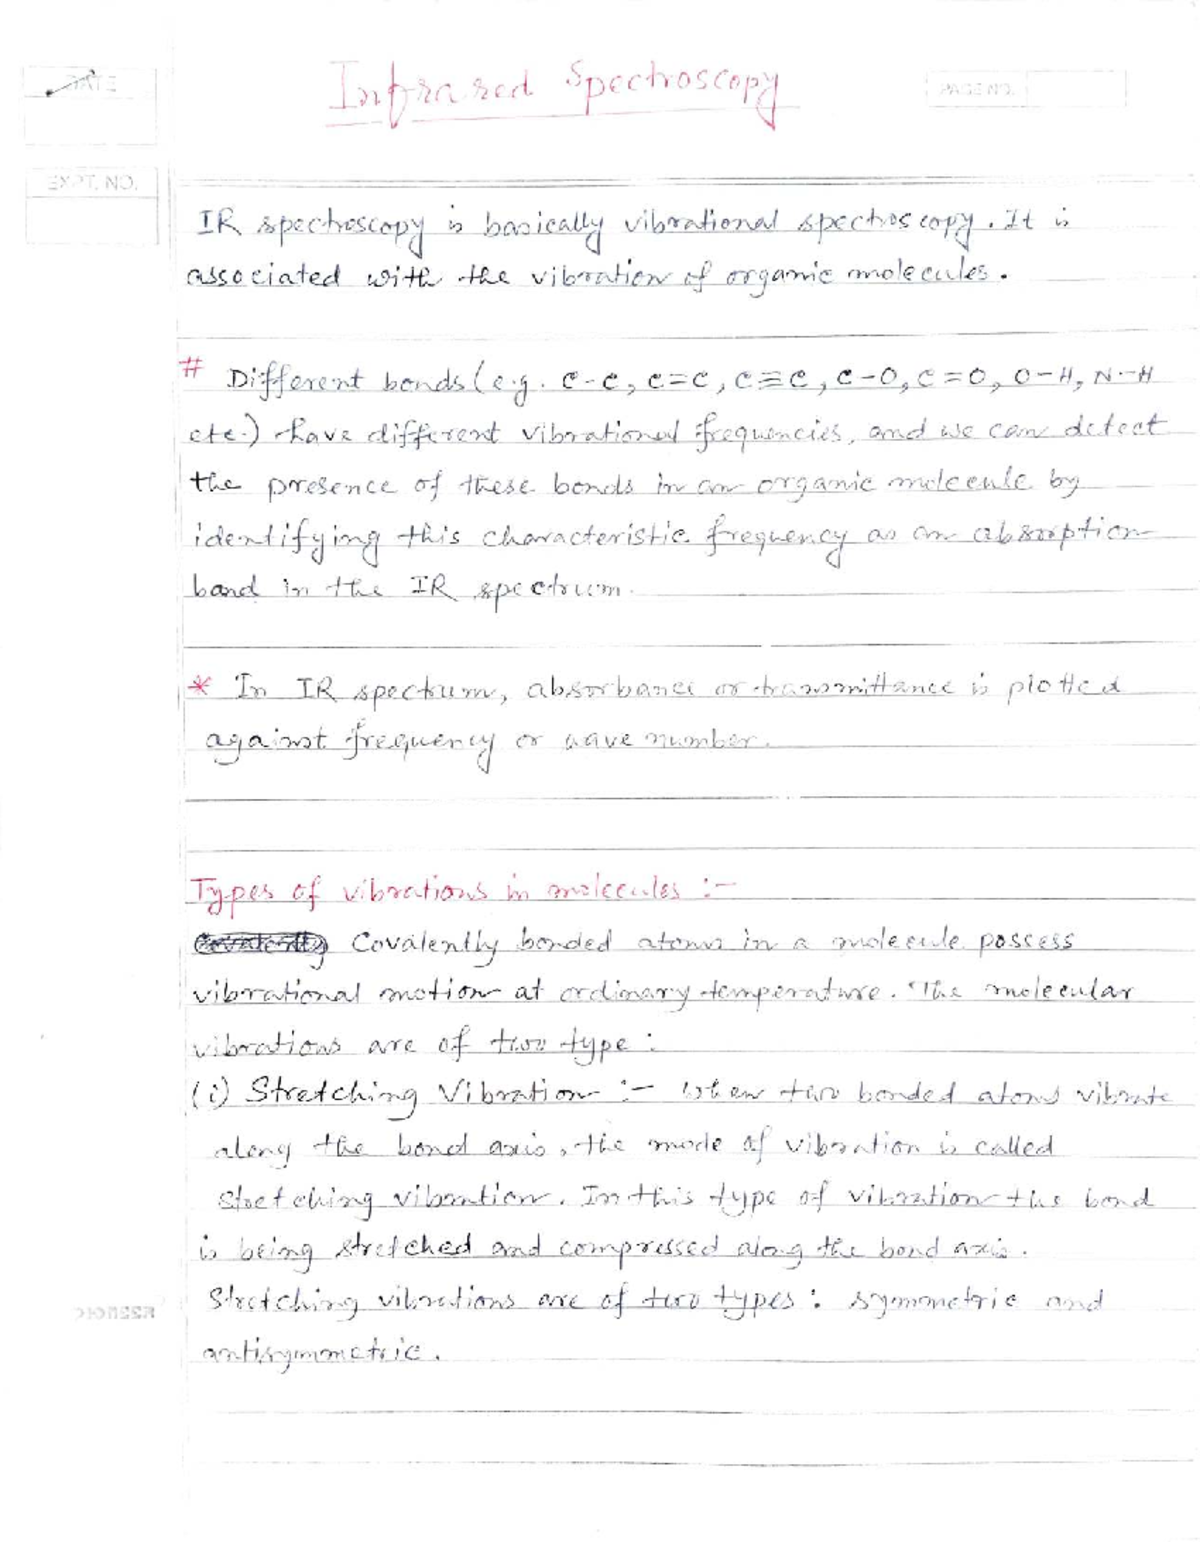 Infrared Spectroscopy
IR spectroscopy is basically vibrational spectroscopy. It is
associated with the vibration of organic molecules.
# Different bonds (e.g. C-C, C=C, C≡C, C-O, C=O, O-H, N-H
etc.) have different vibrational frequencies, and we can detect
the presence of these bonds in an organic molecule by
identifying this characteristic frequency as an absorption
band in the IR spectrum.
* In IR spectrum, absorbance or transmittance is plotted
against frequency or wave number.
Types of vibrations in molecules :-
Covalently bonded atoms in a molecule possess
vibrational motion at ordinary temperature. The molecular
vibrations are of two type :
(i) Stretching Vibration :- When two bonded atoms vibrate
along the bond axis, the mode of vibration is called
stretching vibration. In this type of vibration the bond
is being stretched and compressed along the bond axis.
Stretching vibrations are of two types : symmetric and
antisymmetric.